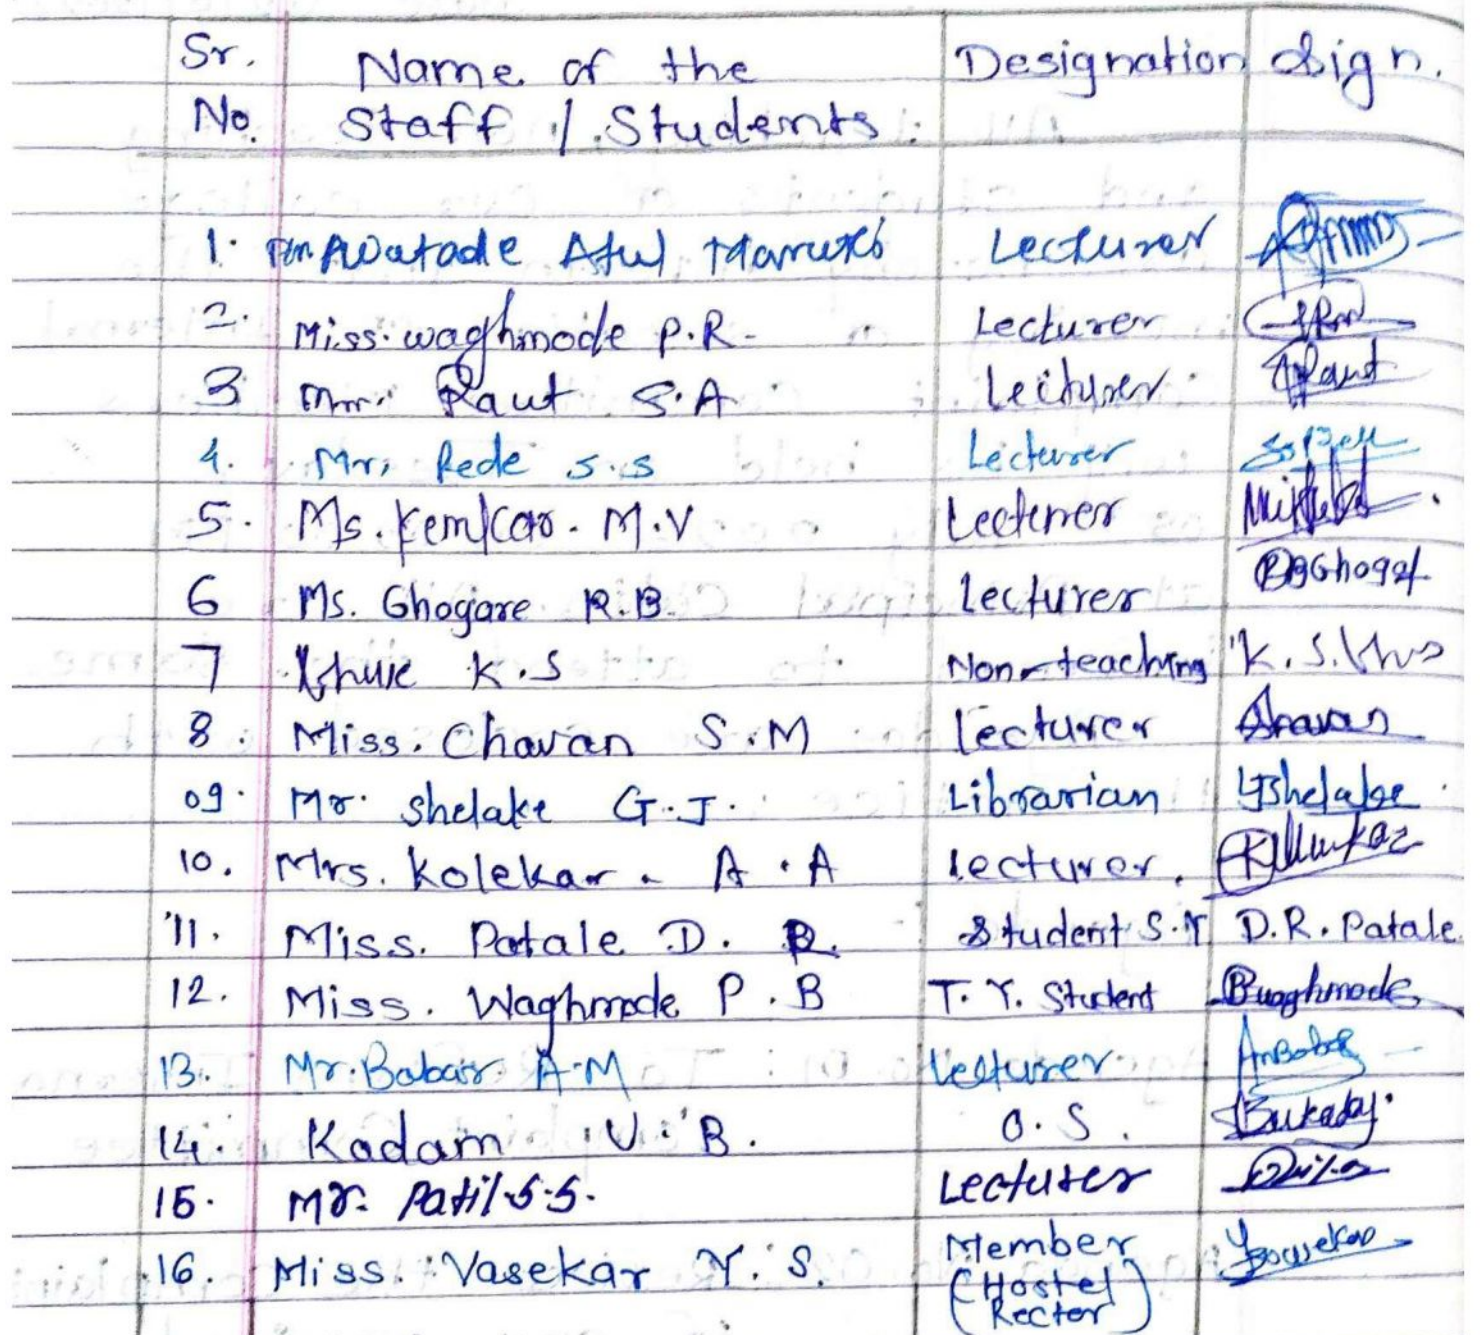 Sr. Name of the Designation Sign.
No. Staff / Students
1. Awatade Atul Maruti Lecturer
2. Miss. waghmode P.R- Lecturer
3 Mr. Raut S.A Lecturer Raut
4. Mr. Rede S.S Lecturer
5. Ms. Kemkar. M.V Lecturer
6 Ms. Ghogare R.B. Lecturer
7 K.S Non-teaching K.S.
8. Miss. Chavan S.M Lecturer
09. Mr. Shelake G.J. Librarian Shelake
10. Mrs. Kolekar. A.A Lecturer.
11. Miss. Patale D. R. Student S.Y D.R. Patale
12. Miss. Waghmode P.B T.Y. Student Bwaghmode
13. Mr. Babar A.M Lecturer
14. Kadam V.B. O.S.
15. Mr. Patil S.S. Lecturer
16. Miss. Vasekar Y.S. Member
(Hostel
Rector)